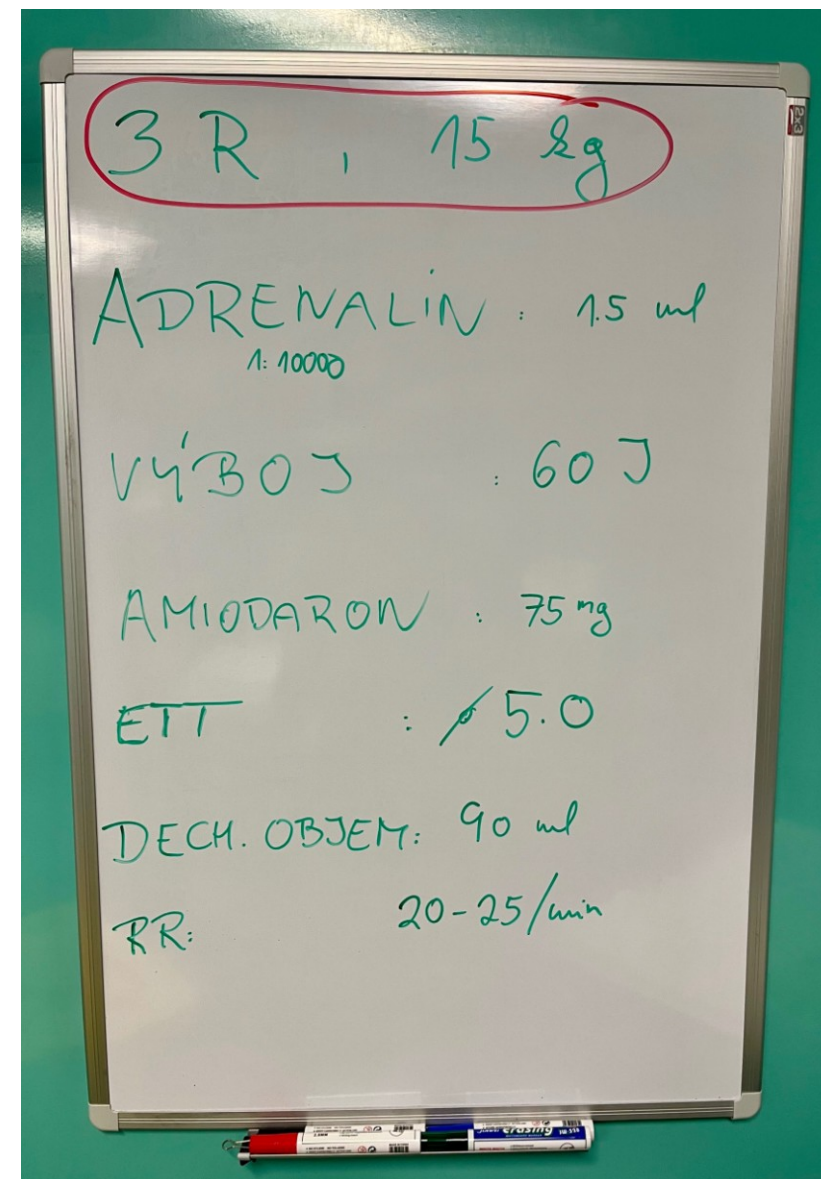 3 R , 15 kg
ADRENALIN : 1.5 ml
1:10000
VÝBOJ : 60 J
AMIODARON : 75 mg
ETT : ø 5.0
DECH. OBJEM: 90 ml
RR: 20-25/min
2x3
erasing